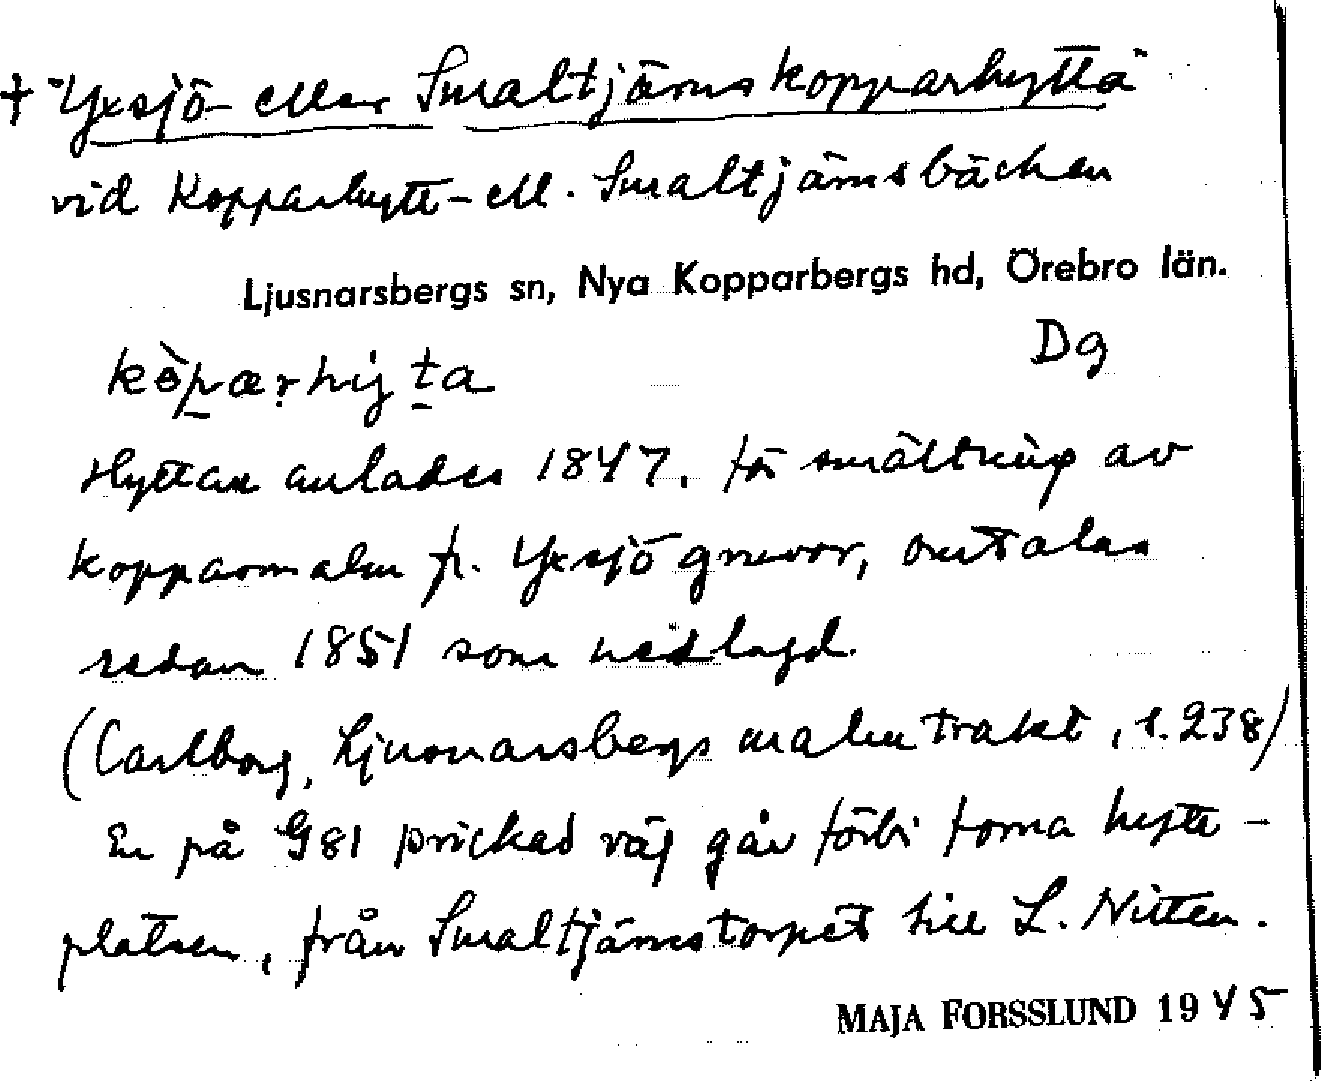 † "Yxsjö- eller Smaltjärnskopparhytta"
vid Kopparhytt- ell. Smaltjärnsbäcken
Ljusnarsbergs sn, Nya Kopparbergs hd, Örebro län.
Dg
Hyttan anlades 1847, för smältning av
kopparmalm fr. Yxsjö gruvor, omtalas
redan 1851 som nedlagd.
(Carlborg, Ljusnarsbergs malmtrakt, s. 238)
En på G81 prickad väg går förbi forna hytt-
platsen, från Smaltjärnstorpet till L. Nitten.
MAJA FORSSLUND 1945